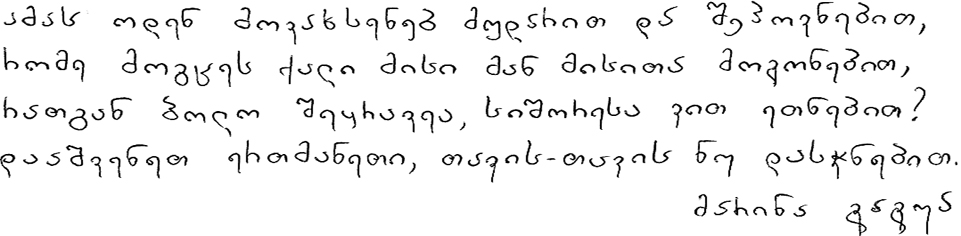 ამას ოდენ მოვახსენებ მუდარით და შეპოვნებით,
რომე მოგცეს ქალი მისი მან მისითა მოგონებით,
რათგან ბოლო შეყრავეა, სიშორესა ვით ეთნებით?
დააშვენეთ ერთმანეთი, თავის-თავის ნუ დასჭნებით.
მარინა გაგუა